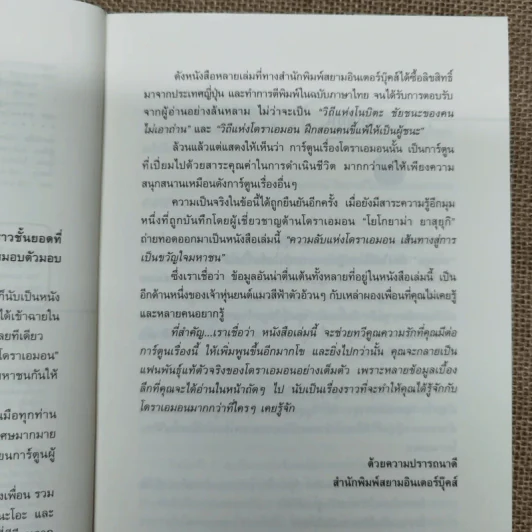 าวชั้นยอดที่
รมอบตัวมอบ
ก็นับเป็นหนัง
ได้เข้าฉายใน
ลยทีเดียว
โดราเอมอน"
มหาชนกันให้
เมือทุกท่าน
ศษมากมาย
ยนการ์ตูนผู้
งเพื่อน รวม
นะโอะ และ
ดังหนังสือหลายเล่มที่ทางสำนักพิมพ์สยามอินเตอร์บุ๊คส์ได้ซื้อลิขสิทธิ์
มาจากประเทศญี่ปุ่น และทำการตีพิมพ์ในฉบับภาษาไทย จนได้รับการตอบรับ
จากผู้อ่านอย่างล้นหลาม ไม่ว่าจะเป็น "วิถีแห่งโนบิตะ ชัยชนะของคน
ไม่เอาถ่าน" และ "วิถีแห่งโดราเอมอน ฝึกสอนคนขี้แพ้ให้เป็นผู้ชนะ"
ล้วนแล้วแต่แสดงให้เห็นว่า การ์ตูนเรื่องโดราเอมอนนั้น เป็นการ์ตูน
ที่เปี่ยมไปด้วยสาระคุณค่าในการดำเนินชีวิต มากกว่าแค่ให้เพียงความ
สนุกสนานเหมือนดังการ์ตูนเรื่องอื่นๆ
ความเป็นจริงในข้อนี้ได้ถูกยืนยันอีกครั้ง เมื่อยังมีสาระความรู้อีกมุม
หนึ่งที่ถูกบันทึกโดยผู้เชี่ยวชาญด้านโดราเอมอน "โยโกยาม่า ยาสุยูกิ"
ถ่ายทอดออกมาเป็นหนังสือเล่มนี้ "ความลับแห่งโดราเอมอน เส้นทางสู่การ
เป็นขวัญใจมหาชน"
ซึ่งเราเชื่อว่า ข้อมูลอันน่าตื่นเต้นทั้งหลายที่อยู่ในหนังสือเล่มนี้ เป็น
อีกด้านหนึ่งของเจ้าหุ่นยนต์แมวสีฟ้าตัวอ้วนๆ กับเหล่าผองเพื่อนที่คุณไม่เคยรู้
และหลายคนอยากรู้
ที่สำคัญ...เราเชื่อว่า หนังสือเล่มนี้ จะช่วยทวีคูณความรักที่คุณมีต่อ
การ์ตูนเรื่องนี้ ให้เพิ่มพูนขึ้นอีกมากโข และยิ่งไปกว่านั้น คุณจะกลายเป็น
แฟนพันธุ์แท้ตัวจริงของโดราเอมอนอย่างเต็มตัว เพราะหลายข้อมูลเบื้อง
ลึกที่คุณจะได้อ่านในหน้าถัดๆ ไป นับเป็นเรื่องราวที่จะทำให้คุณได้รู้จักกับ
โดราเอมอนมากกว่าที่ใครๆ เคยรู้จัก
ด้วยความปรารถนาดี
สำนักพิมพ์สยามอินเตอร์บุ๊คส์